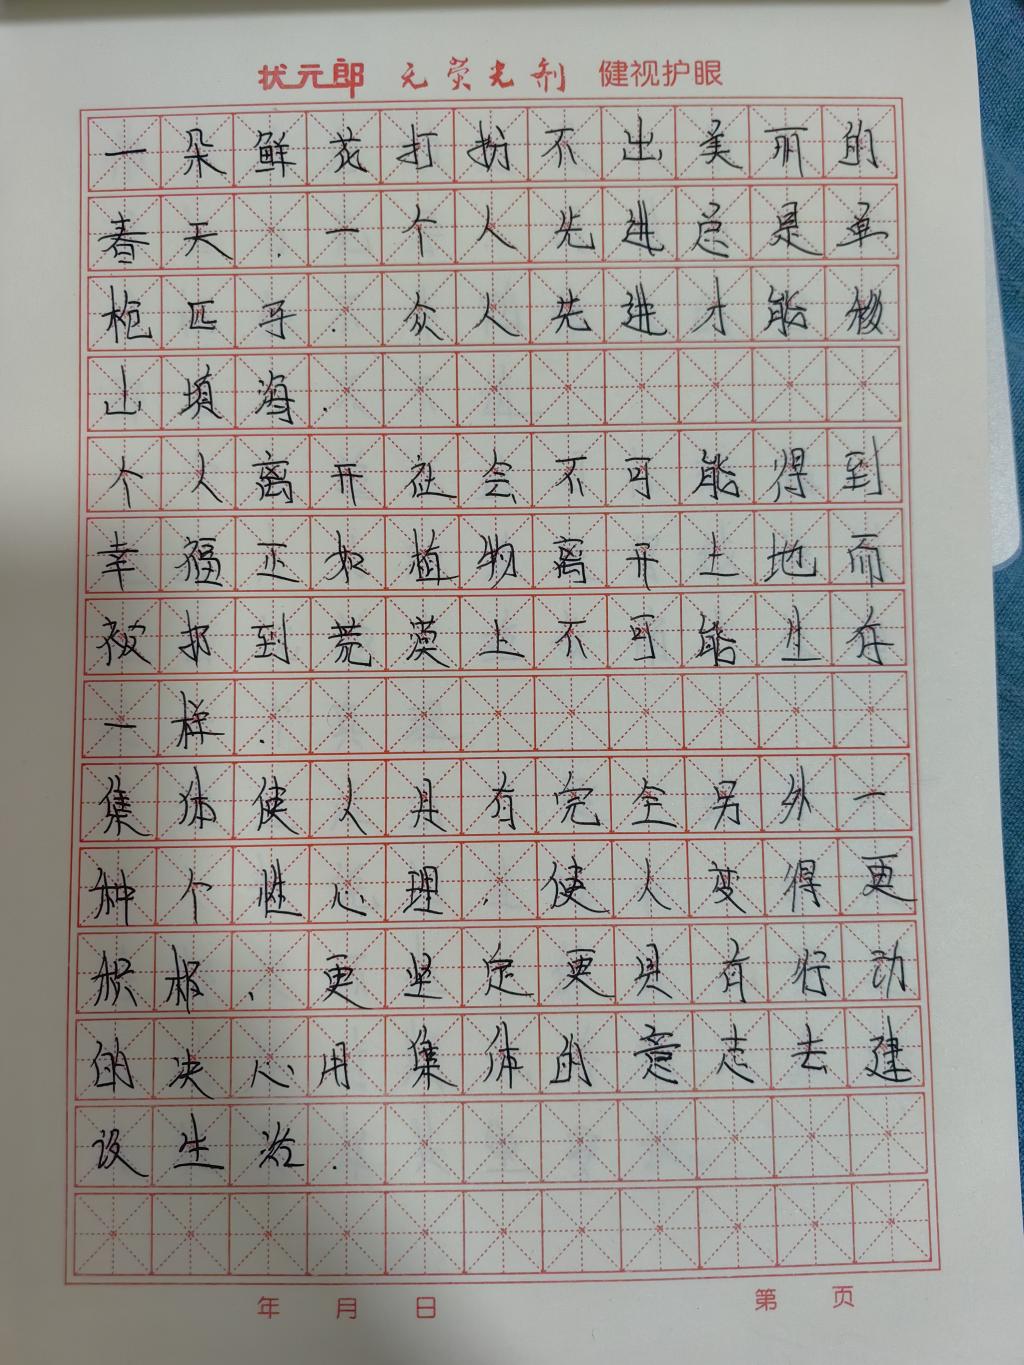 状元郎 无荧光剂 健视护眼
一朵鲜花打扮不出美丽的
春天.一个人先进总是单
枪匹子.众人先进才能移
山填海.
个人离开社会不可能得到
幸福正如植物离开土地而
被扔到荒漠上不可能生存
一样.
集体使人具有完全另外一
种个性心理.使人变得更
积极、更坚定更具有行动
的决心用集体的意志去建
设生活.
年 月 日 第 页